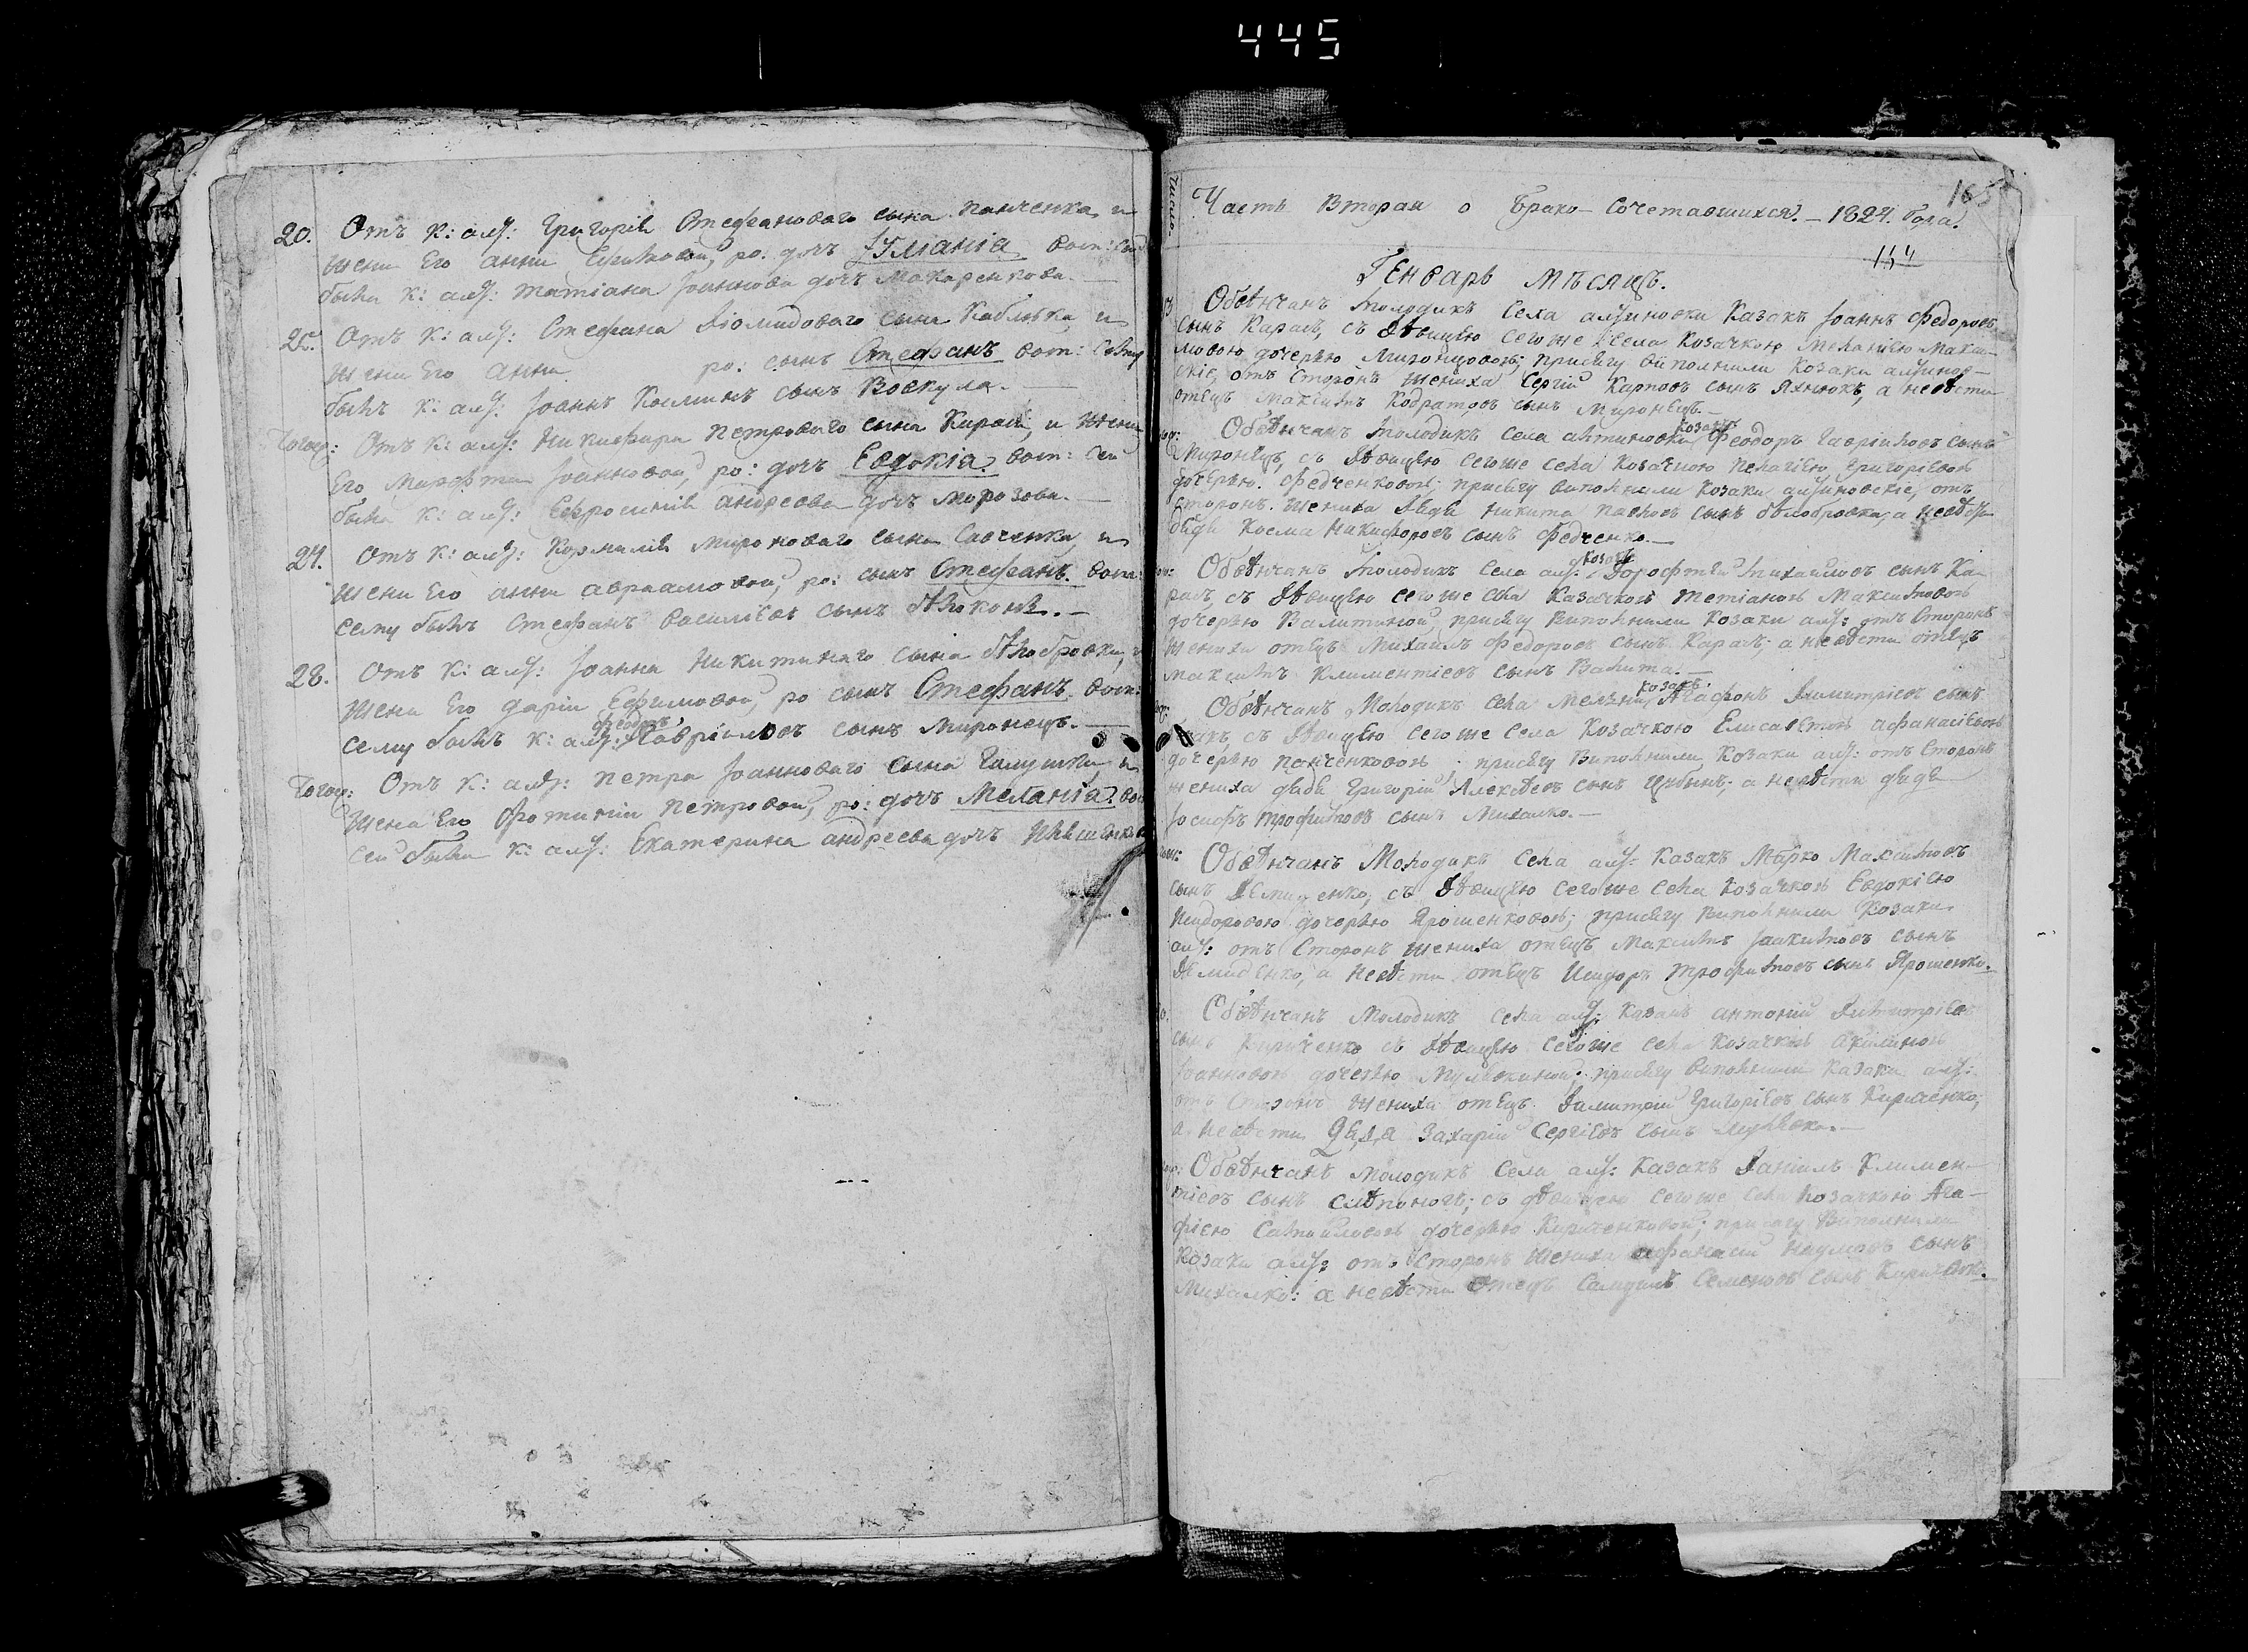 445
20. Отъ к: алт: Григорія Стефановаго сына Панченка, и
жени Его анни Ефимовой, ро: дочь Іуліаніа вос:
была к: алт: татіана Іоаннова дочь Макаренкова.
Отъ к: алт: Стефана Діомидоваго сына Кабляка, и
жени Его анни ро: сынъ Стефанъ вос: сему
былъ к: алт: Іоаннъ Косминъ сынъ Воскула.
Тогож: Отъ к: алт: Никифора Петроваго сына Карася, и жени
Его Марфти Іоанновой, ро: дочь Евдокіа. вос: сей
была к: алт: Евросинія андреева дочь морозова.
24. Отъ к: алт: Корнилія мироноваго сына Савченка, и
жени Его анни авраамовой, ро: сынъ Стефанъ. вос:
сему былъ Стефанъ василіевъ сынъ бѣлоконь.
28. Отъ к: алт: Іоанна Никитинаго сына бѣлобровки, и
жени Его даріи Ефимовой, ро сынъ Стефанъ. вос:
феодоръ
сему былъ к: алт: Гавріиловъ сынъ миронецъ.
Тогож: Отъ к: алт: петра Іоанноваго сына Галушки, и
жена Его Фотиніи петровой, ро: дочь Меланіа. вос
сей была к: алт: Екатерина андреева дочь
Число.
Часть вторая о Брако-Сочетавшихся. 1824. Года.
165
154
Генварь мѣсяцъ.
Обвѣнчанъ молодикъ села алтиновки Казакъ Іоаннъ Федоровъ
сынъ Карась, съ дѣвицею сегоже села Козачкою Меланіею Макси-
мовою дочерью Миронцовою; присягу виполнили Козаки алтинов-
скіе, отъ сторонъ жениха Сергій Карповъ сынъ Яхнюкъ, а невѣсти
отецъ Максимъ Кодратовъ сынъ Миронецъ.
козакъ
Обвѣнчанъ молодикъ села алтиновки Феодоръ Гавріиловъ сынъ
Миронецъ, съ дѣвицею сегоже села Козачкою Пелагіею Григоріевою
дочерью Федченковою; присягу виполнили Козаки алтиновскіе, отъ
сторонъ жениха дядя Никита Павловъ сынъ бѣлобровка, а невѣсти
дядя Косма Никифоровъ сынъ Федченко.
козакъ
Обвѣнчанъ молодикъ села алт: Дорофтей Михайловъ сынъ Ка
рась, съ дѣвицею сегоже села Казачкою Тетіаною Максимовою
дочерью Валитиной присягу виполнили Козаки алт: отъ сторонъ
жениха отецъ Михаилъ Федоровъ сынъ Карась; а невѣсти отецъ
максимъ Климентіевъ сынъ Валита.
козакъ
Обвѣнчанъ Молодикъ села Мелѣни Агафонъ Димитріевъ сынъ
съ дѣвицею сегоже села Козачкою Елисаветою афанасіевою
дочерью панченковою присягу виполнили Козаки алт: отъ сторонъ
жениха дядя Григорій Алексѣевъ сынъ а невѣсти дядя
Іосифъ трофимовъ сынъ Михалко.
Обвѣнчанъ Молодикъ села алт: Казакъ Марко Максимовъ
сынъ Демиденко, съ дѣвицею сегоже села козачкою Евдокіею
Исидоровою дочерью Ярошенковою; присягу виполнили Козаки
алт: отъ сторонъ жениха отецъ Максимъ Іоакимовъ сынъ
Демиденко, а невѣсти отецъ Исидоръ трофимовъ сынъ Ярошенко.
Обвѣнчанъ Молодикъ села алт: Казакъ антоній Димитріевъ
сынъ Кириченко съ дѣвицею сегоже села козачкою Акилиною
Іоанновою дочерью присягу виполнили Казаки алт:
отъ сторонъ жениха отецъ Димитрій Григоріевъ сынъ Кириченко,
а невѣсти дядя Захарій Сергіевъ сынъ
Обвѣнчанъ молодикъ села алт: Казакъ Даніилъ Климен-
тіевъ сынъ слѣпоногъ; съ дѣвицею сегоже села Козачкою Ага-
фіею Самойловою дочерью Кириченковой; присягу виполнили
Козаки алт: отъ сторонъ жениха афанасій Наумовъ сынъ
Михалко: а невѣсти отецъ Самуилъ Семеновъ сынъ Кириченко.